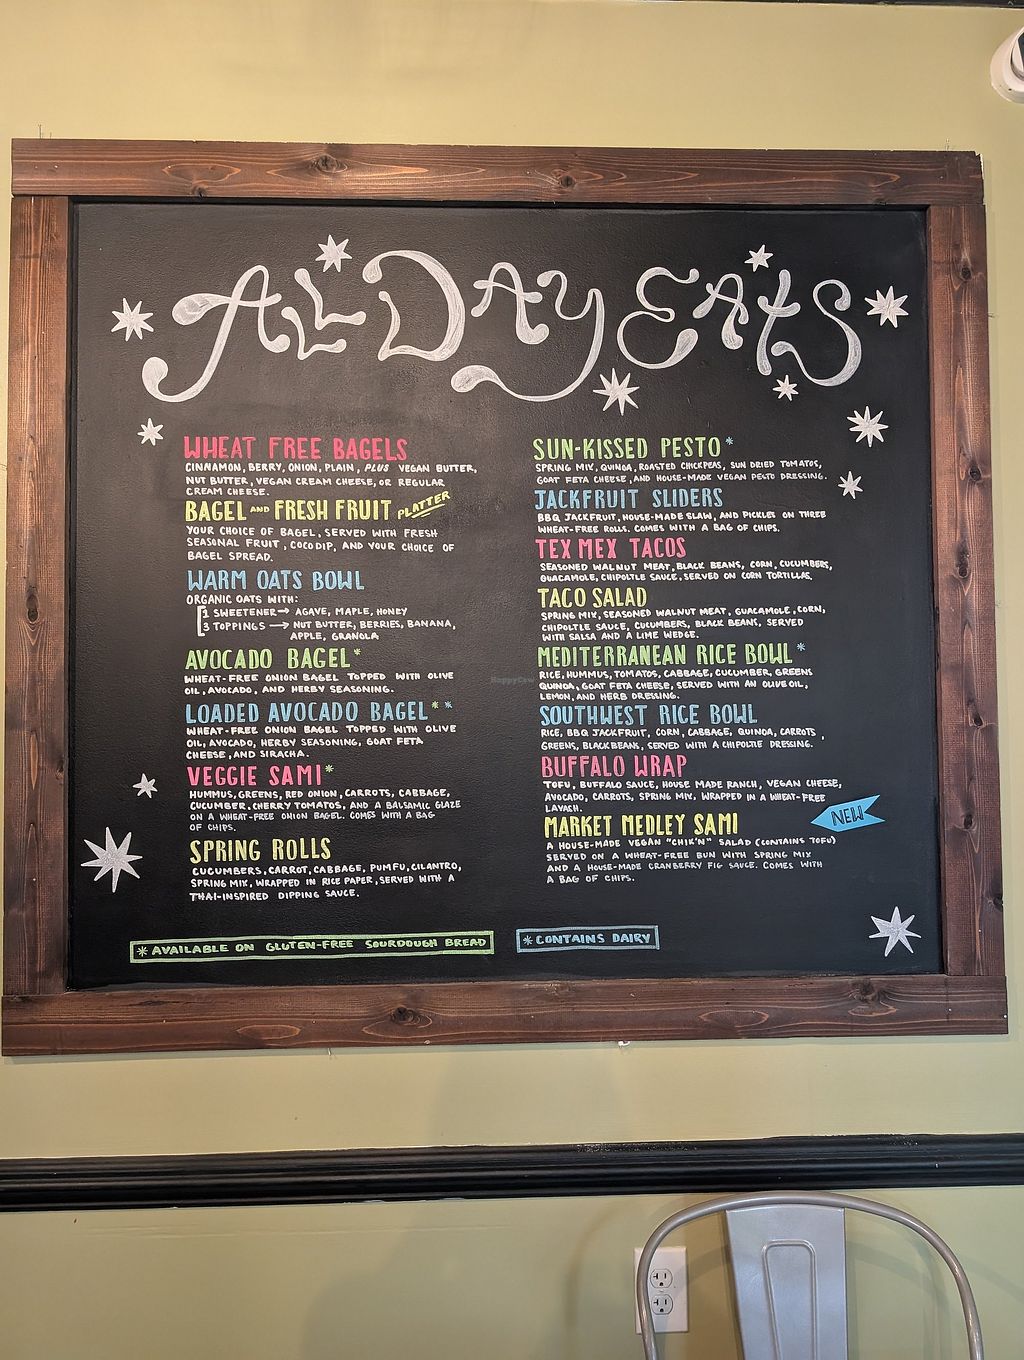 ALL DAY EATS
WHEAT FREE BAGELS
CINNAMON, BERRY, ONION, PLAIN, PLUS VEGAN BUTTER,
NUT BUTTER, VEGAN CREAM CHEESE, OR REGULAR
CREAM CHEESE.
BAGEL AND FRESH FRUIT PLATTER
YOUR CHOICE OF BAGEL, SERVED WITH FRESH
SEASONAL FRUIT, COCODIP, AND YOUR CHOICE OF
BAGEL SPREAD.
WARM OATS BOWL
ORGANIC OATS WITH:
1 SWEETENER → AGAVE, MAPLE, HONEY
3 TOPPINGS → NUT BUTTER, BERRIES, BANANA,
APPLE, GRANOLA
AVOCADO BAGEL*
WHEAT-FREE ONION BAGEL TOPPED WITH OLIVE
OIL, AVOCADO, AND HERBY SEASONING.
LOADED AVOCADO BAGEL**
WHEAT-FREE ONION BAGEL TOPPED WITH OLIVE
OIL, AVOCADO, HERBY SEASONING, GOAT FETA
CHEESE, AND SIRACHA.
VEGGIE SAMI*
HUMMUS, GREENS, RED ONION, CARROTS, CABBAGE,
CUCUMBER, CHERRY TOMATOS, AND A BALSAMIC GLAZE
ON A WHEAT-FREE ONION BAGEL. COMES WITH A BAG
OF CHIPS.
SPRING ROLLS
CUCUMBERS, CARROT, CABBAGE, PUMFU, CILANTRO,
SPRING MIX, WRAPPED IN RICE PAPER, SERVED WITH A
THAI-INSPIRED DIPPING SAUCE.
*AVAILABLE ON GLUTEN-FREE SOURDOUGH BREAD
SUN-KISSED PESTO*
SPRING MIX, QUINOA, ROASTED CHICKPEAS, SUN DRIED TOMATOS,
GOAT FETA CHEESE, AND HOUSE-MADE VEGAN PESTO DRESSING.
JACKFRUIT SLIDERS
BBQ JACKFRUIT, HOUSE-MADE SLAW, AND PICKLES ON THREE
WHEAT-FREE ROLLS. COMES WITH A BAG OF CHIPS.
TEX MEX TACOS
SEASONED WALNUT MEAT, BLACK BEANS, CORN, CUCUMBERS,
GUACAMOLE, CHIPOLTE SAUCE, SERVED ON CORN TORTILLAS.
TACO SALAD
SPRING MIX, SEASONED WALNUT MEAT, GUACAMOLE, CORN,
CHIPOLTLE SAUCE, CUCUMBERS, BLACK BEANS, SERVED
WITH SALSA AND A LIME WEDGE.
MEDITERRANEAN RICE BOWL*
RICE, HUMMUS, TOMATOS, CABBAGE, CUCUMBER, GREENS
QUINOA, GOAT FETA CHEESE, SERVED WITH AN OLIVE OIL,
LEMON, AND HERB DRESSING.
SOUTHWEST RICE BOWL
RICE, BBQ JACKFRUIT, CORN, CABBAGE, QUINOA, CARROTS,
GREENS, BLACK BEANS, SERVED WITH A CHIPOLTLE DRESSING.
BUFFALO WRAP
TOFU, BUFFALO SAUCE, HOUSE MADE RANCH, VEGAN CHEESE,
AVOCADO, CARROTS, SPRING MIX, WRAPPED IN A WHEAT-FREE
LAVASH.
MARKET MEDLEY SAMI
NEW
A HOUSE-MADE VEGAN "CHIK'N" SALAD (CONTAINS TOFU)
SERVED ON A WHEAT-FREE BUN WITH SPRING MIX
AND A HOUSE-MADE CRANBERRY FIG SAUCE. COMES WITH
A BAG OF CHIPS.
*CONTAINS DAIRY
HappyCow